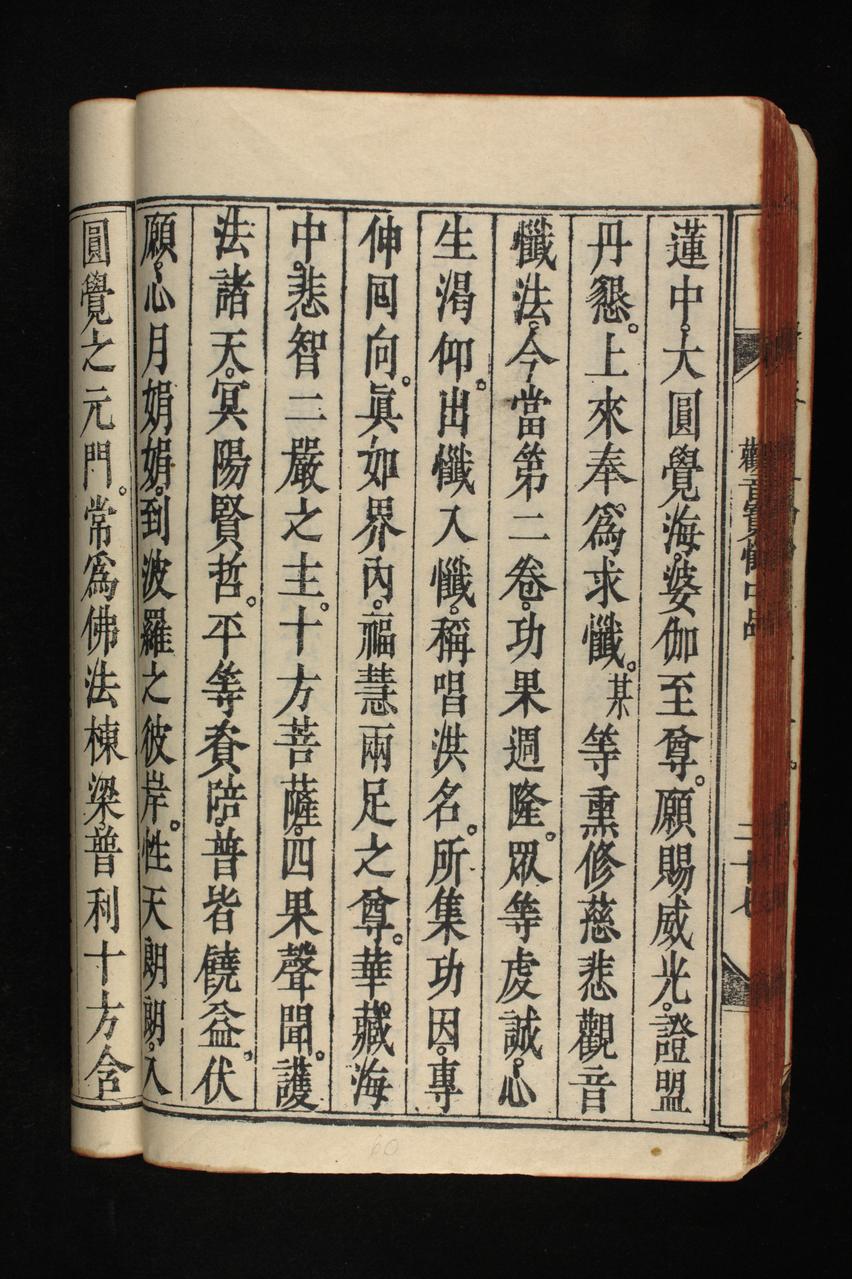 觀音寶懺中品
二十七
蓮中。大圓覺海。婆伽至尊。願賜威光。證盟
丹懇。上來奉爲求懺。某等熏修慈悲觀音
懺法。今當第二卷。功果週隆。眾等虔誠。心
生渴仰。出懺入懺。稱唱洪名。所集功因。專
伸囘向。眞如界內。福慧兩足之尊。華藏海
中。悲智二嚴之主。十方菩薩。四果聲聞。護
法諸天。冥陽賢哲。平等賚陪。普皆饒益。伏
願。心月娟娟。到波羅之彼岸。性天朗朗。入
圓覺之元門。常爲佛法棟梁普利十方含
60